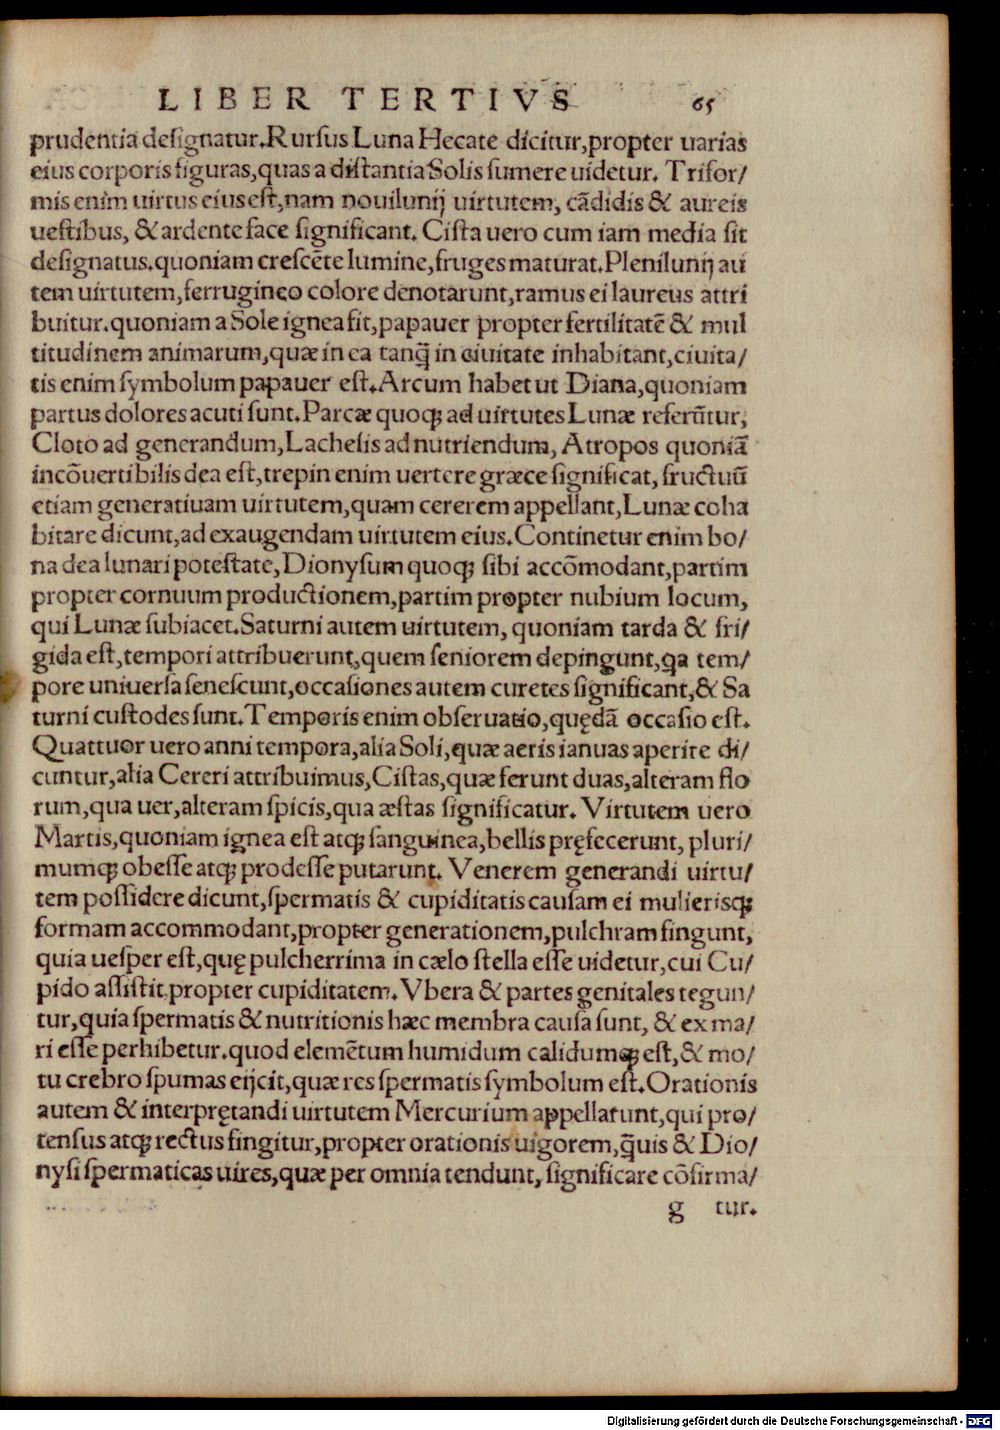 LIBER TERTIVS 65
prudentia designatur. Rursus Luna Hecate dicitur, propter uarias
eius corporis figuras, quas a distantia Solis sumere uidetur. Trifor/
mis enim uirtus eius est, nam nouilunij uirtutem, cādidis & aureis
uestibus, & ardente face significant. Cista uero cum iam media sit
designatus. quoniam crescēte lumine, fruges maturat. Plenilunij au
tem uirtutem, ferrugineo colore denotarunt, ramus ei laureus attri
buitur. quoniam a Sole ignea fit, papauer propter fertilitatē & mul
titudinem animarum, quæ in ea tanq̄ in ciuitate inhabitant, ciuita/
tis enim symbolum papauer est. Arcum habet ut Diana, quoniam
partus dolores acuti sunt. Parcæ quoq; ad uirtutes Lunæ referūtur,
Cloto ad generandum, Lachesis ad nutriendum, Atropos quoniā
incōuertibilis dea est, trepin enim uertere græce significat, fructuū
etiam generatiuam uirtutem, quam cererem appellant, Lunæ coha
bitare dicunt, ad exaugendam uirtutem eius. Continetur enim bo/
na dea lunari potestate, Dionysum quoq; sibi accōmodant, partim
propter cornuum productionem, partim propter nubium locum,
qui Lunæ subiacet. Saturni autem uirtutem, quoniam tarda & fri/
gida est, tempori attribuerunt, quem seniorem depingunt, qa tem/
pore uniuersa senescunt, occasiones autem curetes significant, & Sa
turni custodes sunt. Temporis enim obseruatio, quędā occasio est.
Quattuor uero anni tempora, alia Soli, quæ aeris ianuas aperire di/
cuntur, alia Cereri attribuimus, Cistas, quæ ferunt duas, alteram flo
rum, qua uer, alteram spicis, qua æstas significatur. Virtutem uero
Martis, quoniam ignea est atq; sanguinea, bellis pręfecerunt, pluri/
mumq; obesse atq; prodesse putarunt. Venerem generandi uirtu/
tem possidere dicunt, spermatis & cupiditatis causam ei mulierisq;
formam accommodant, propter generationem, pulchram fingunt,
quia uesper est, quę pulcherrima in cælo stella esse uidetur, cui Cu/
pido assistit propter cupiditatem. Vbera & partes genitales tegun/
tur, quia spermatis & nutritionis hæc membra causa sunt, & ex ma/
ri esse perhibetur. quod elemētum humidum calidumq; est, & mo/
tu crebro spumas eijcit, quæ res spermatis symbolum est. Orationis
autem & interprętandi uirtutem Mercurium appellarunt, qui pro/
tensus atq; rectus fingitur, propter orationis uigorem, q̄uis & Dio/
nysi spermaticas uires, quæ per omnia tendunt, significare cōfirma/
g tur.
Digitalisierung gefördert durch die Deutsche Forschungsgemeinschaft - DFG